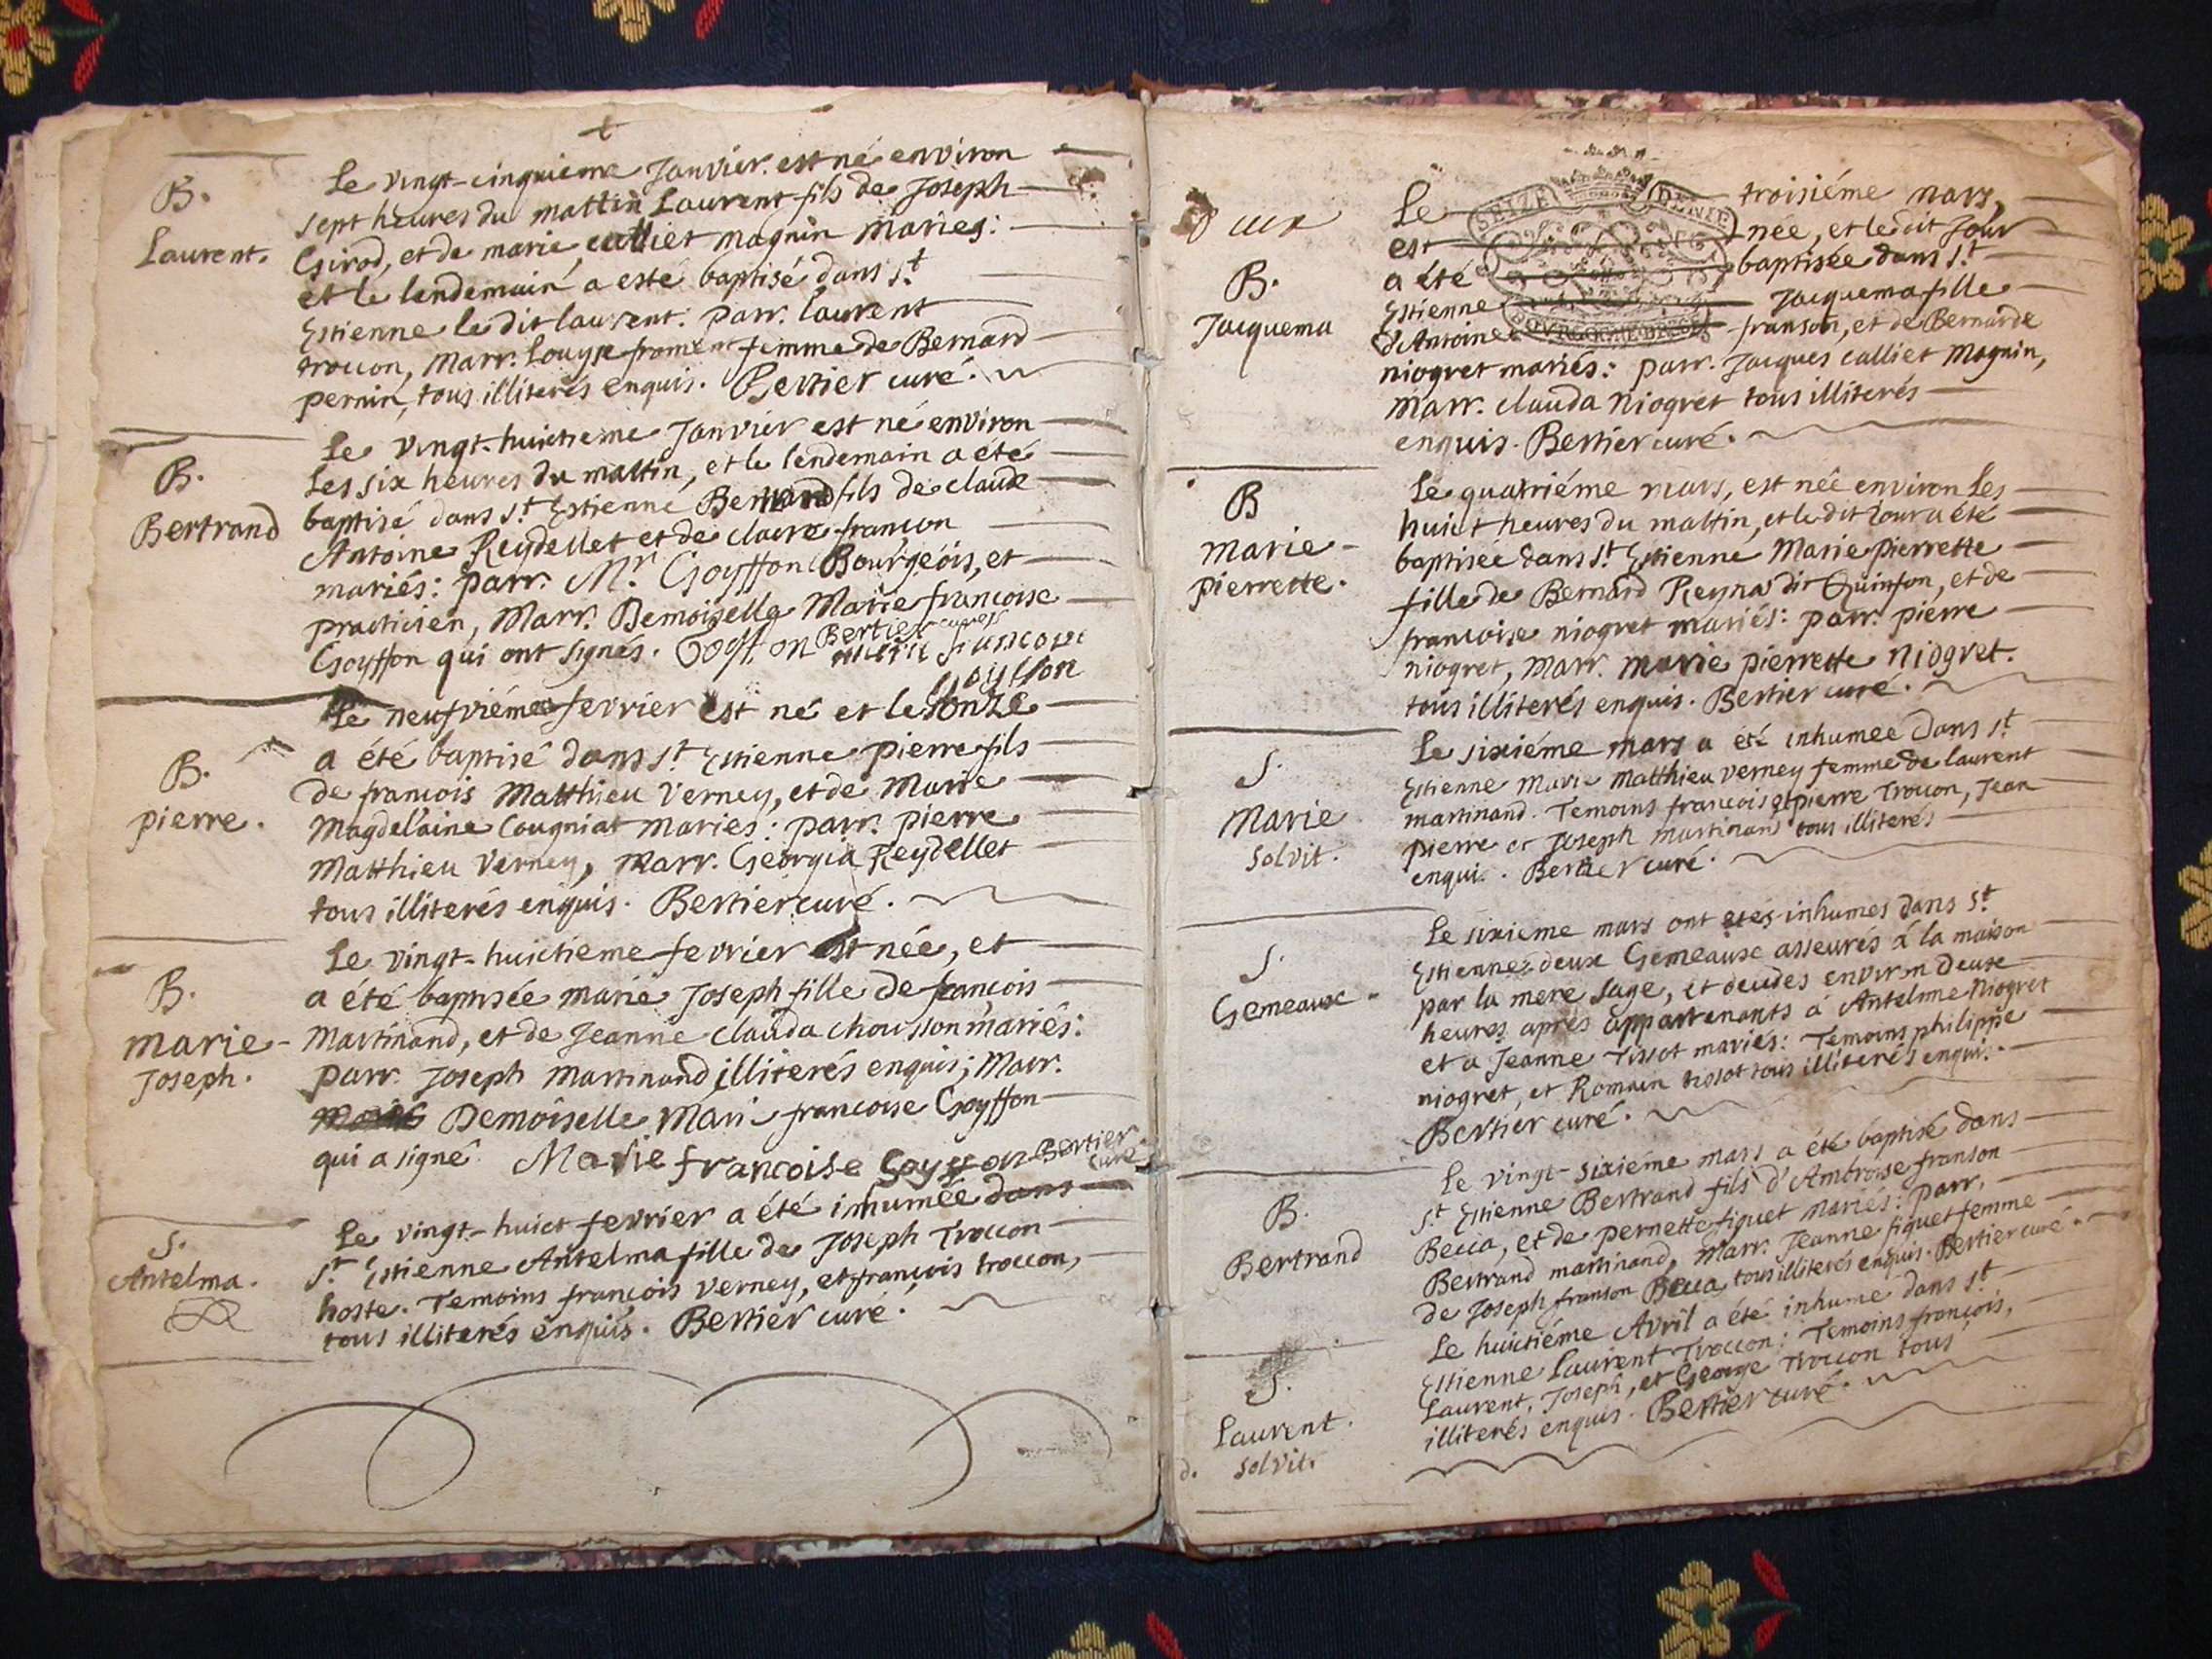 B.
Laurent.
Le vingt-cinquieme Janvier est né environ
sept heures du mattin Laurent fils de Joseph
Girod, et de marie culliet magnin mariés:
et le lendemain a esté baptisé dans St
Estienne le dit laurent: parr. laurent
troccon, Marr. Louyse froment femme de Bernard
pernin, tous illiterés enquis. Bertier curé.
B.
Bertrand
Le vingt-huictieme Janvier est né environ
Les six heures du mattin, et le lendemain a été
baptisé dans St Estienne Bertrand fils de claude
Antoine Reydellet et de claire françon
mariés: parr. Mr Goyffon Bourgeois, et
practicien, Marr. Demoiselle Marie francoise
Goyffon qui ont signés. Goyffon Bertier curé
marie francoise
goyffon
B.
pierre.
Le neufviéme fevrier est né et le onze
a été baptisé dans St Estienne pierre fils
de francois Matthieu Verney, et de Marie
Magdelaine Cougniat mariés: parr. pierre
Matthieu Verney, Marr. Georgia Reydellet
tous illiterés enquis. Bertier curé.
B.
marie-
Joseph.
Le vingt-huictieme fevrier est née, et
a été baptisée marie Joseph fille de francois
Martinand, et de Jeanne clauda chousson mariés:
parr. Joseph Martinand illiterés enquis; Marr.
Demoiselle Marie francoise Goyffon
qui a signé Marie francoise Goyffon Bertier
curé
S.
Antelma.
Le vingt-huict fevrier a été inhumée dans
St Estienne Antelma fille de Joseph Troccon
hoste. Temoins francois Verney, et francois troccon,
tous illiterés enquis. Bertier curé.
deux
SEIZE DENIE
BOURGOGNE BRESSE
B.
Jacquema
Le troisiéme mars,
est née, et le dit Jour
a été baptisée dans St
Estienne Jacquema fille
d'Antoine franson, et de Bernarde
niogret mariés: parr. Jacques culliet Magnin,
Marr. clauda Niogret tous illiterés
enquis. Bertier curé.
B
marie-
pierrette.
Le quatriéme mars, est née environ les
huict heures du mattin, et le dit Jour a été
baptisée dans St Estienne Marie pierrette
fille de Bernard Reyna dit Quinson, et de
francoise niogret mariés: parr. pierre
niogret, Marr. marie pierrette niogret.
tous illiterés enquis. Bertier curé.
S.
Marie
solvit.
Le sixiéme mars a été inhumee dans St
Estienne Marie Matthieu Verney femme de laurent
martinand. Temoins francois et pierre Troccon, Jean
pierre et Joseph martinand tous illiterés
enquis. Bertier curé.
S.
Gemeaux.
Le sixieme mars ont etés inhumes dans St
Estienne deux Gemeaux asseurés à la maison
par la mere sage, et decedes environ deux
heures aprés appartenants à Antelme Niogret
et a Jeanne Tissot mariés: Temoins philippe
niogret, et Romain tissot tous illiterés enquis.
Bertier curé.
B.
Bertrand
Le vingt-sixiéme mars a été baptisé dans
St Estienne Bertrand fils d'Ambroise franson
Becca, et de pernette figuet mariés: parr.
Bertrand martinand, Marr. Jeanne figuet femme
de Joseph franson Becca tous illiterés enquis. Bertier curé.
S.
Laurent.
solvit.
d.
Le huictiéme Avril a été inhumé dans St
Estienne Laurent Troccon: Temoins francois,
Laurent, Joseph, et George Troccon tous
illiterés enquis. Bertier curé.